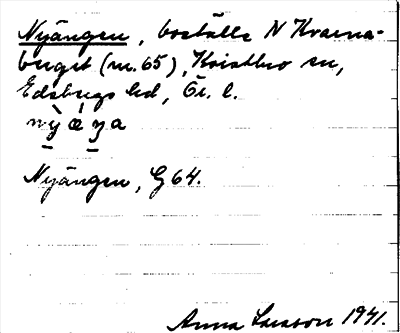 Nyängen, boställe N Kvarna-
berget (nr. 65), Kristbro sn,
Edsbergs hd, Ör. l.
Nyängen, G 64.
Anna Larsson 1941.